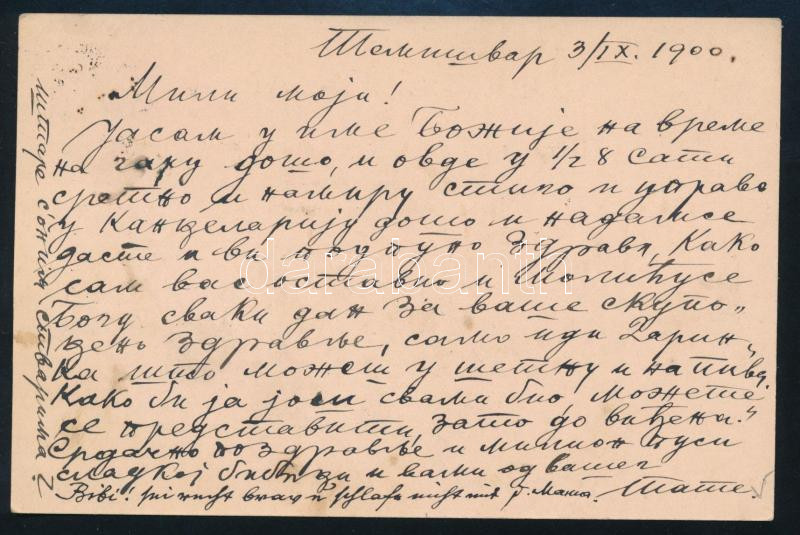 Темишвар 3/IX. 1900.
Мили моји!
Ја сам у име Божије на време
на гару дошо, и овде у 1/2 8 сати
сретно и на миру стиго и управо
у Канцеларију дошо и надам се
да сте и ви потпуно здрави, како
сам вас оставио и молићу се
Богу сваки дан за ваше скупо„
цено здравље, само иди Зорин„
ка што можеш у шетњу и на пиво,
Како би ја још с вама био, можете
се представити, зато до виђења!
Срдачно поздравље и милион пуси
сладкој биби и вами од вашег
Тате.
Bibi! sei recht brav u schlafe nicht mit d. Mama.
питаре с оним стварима?
darabanth